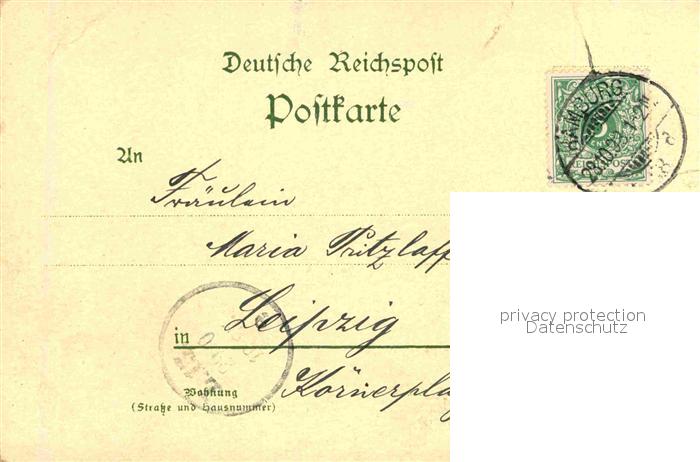 Deutsche Reichspost
Postkarte
An
Fräulein
Maria Pritzlaff
in Leipzig
Körnerpla
Wohnung
(Straße und Hausnummer)
HAMBURG
privacy protection
Datenschutz